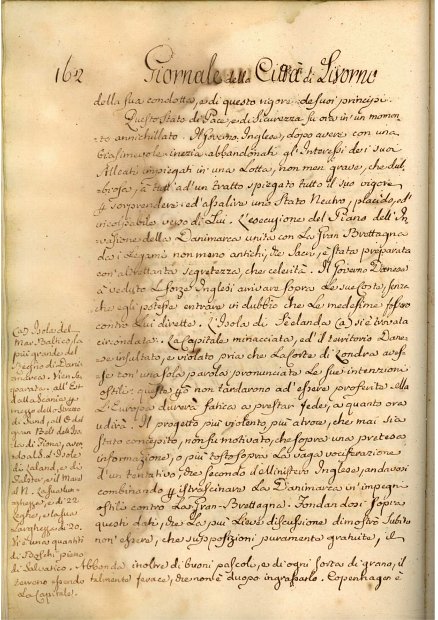 162 Giornale della Città di Livorno
della sua condotta, e di questo vigore de suoi principi.
Questo Stato di Pace, e di Sicurezza fu ora in un momen
to annichilato. Il Governo Inglese, dopo avere con una
biasimevole inerzia abbandonati gl'Interessi de i suoi
Alleati impiegati in una Lotta, non men grave, che dub
biosa, à tutt'ad'un tratto spiegato tutto il suo vigore
sorprendere ed assalire uno Stato Neutro, placido, ed
incolpabile verso di Lui. L'esecuzione del Piano dell'In
vasione della Danimarca unita con La Gran Brettagna
da i Legami non meno antichi, che Sacri, è stata preparata
con altrettanta segretezza, che celerità. Il Governo Danese
à veduto Le forze Inglesi avvisare sopra Le sue Coste, senza
che egli potesse entrare in dubbio che Le medesime fossero
contro Lui dirette. L'Isola di Seelanda (a) si è trovata
circondata. La Capitale minacciata, ed il territorio Dane
se insultato, e violato pria che La Corte di Londra aves
se con una sola parola pronunciata Le sue intenzioni
ostili: queste però non tardarono ad essere proferite ella
L'Europa durerà fatica a prestar fede, a quanto ora
udirà. Il progetto più violento, più atroce, che mai sia
stato concepito, non fu motivato, che sopra una pretesa
informazione, o più tosto sopra La vaga vociferazione
d'un tentativo, che secondo il Ministero Inglese, andavasi
combinando istrascinare La Danimarca in impegni
ostili contro La Gran-Brettagna. Fondandosi sopra
questi dati, che La più Lieve discussione dimostrò subito
non essere, che supposizioni puramente gratuite, il
(a) Isola del
Mar Baltico, La
più grande del
Regno di Dani
marca. Vien se
parata all'Est
dalla Scania
mezzo dello Stretto
di Sund, all'O. del
gran Belt dell'Iso
la di Fionia, aven
do al S. L'Isole
di Laland, e di
Falster, e il Mare
al N. La sua Lun
ghezza, e di 22
Leghe, e La sua
Larghezza di 20.
Vi è una quanti
tà di Boschi pieni
di Salvatico. Abbonda inoltre di buoni pascoli, e di ogni sorta di grano, il
terreno essendo talmente ferace, che non è d'uopo ingrassarlo. Copenhagen è
La Capitale.